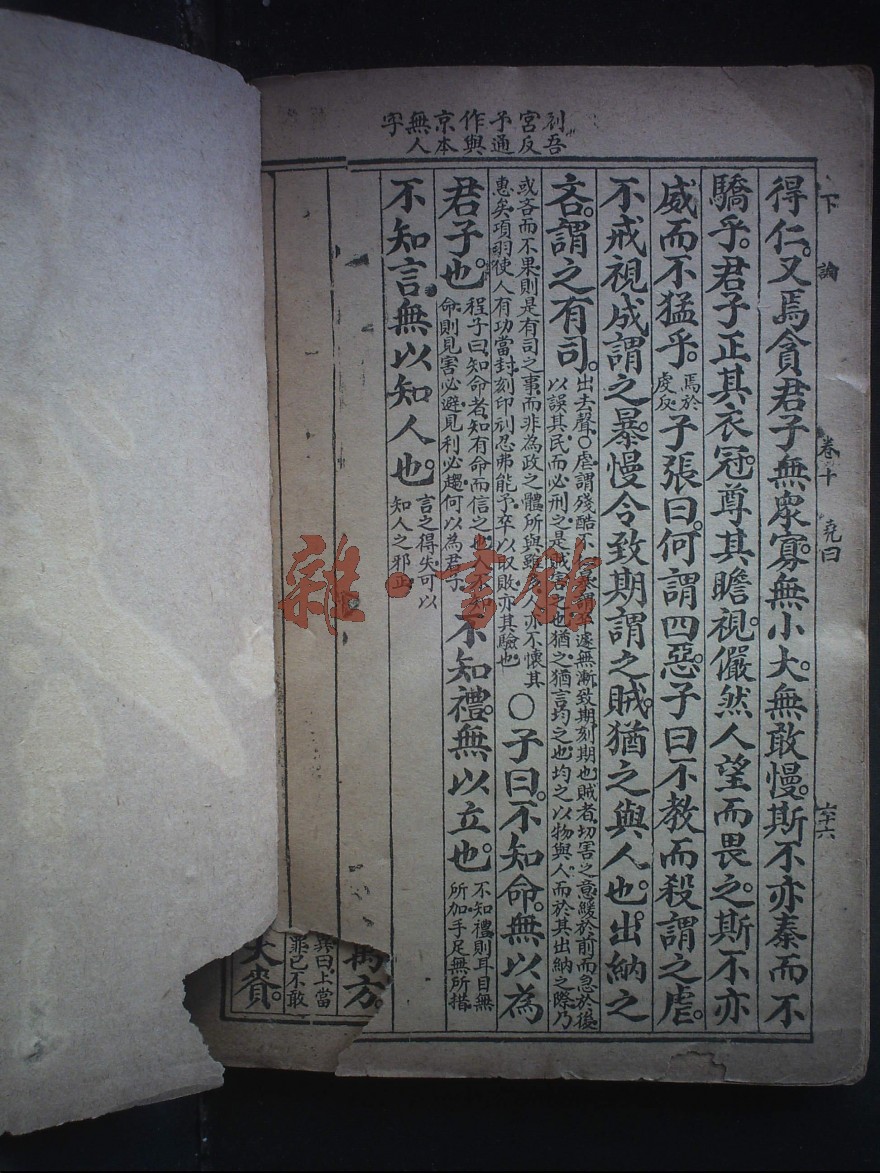 刓吾
宮反
予通
作與
京本
無人
字
下論 卷十 堯曰 六十六
得仁。又焉貪。君子無衆寡。無小大。無敢慢。斯不亦泰而不
驕乎。君子正其衣冠。尊其瞻視。儼然人望而畏之。斯不亦
威而不猛乎。焉於虔反子張曰。何謂四惡。子曰不教而殺謂之虐。
不戒視成謂之暴。慢令致期謂之賊。猶之與人也。出納之
吝。謂之有司。出去聲○虐謂殘酷不仁暴謂卒遽無漸致期刻期也賊者切害之意緩於前而急於後
以誤其民而必刑之是賊害之也猶之猶言均之也均之以物與人而於其出納之際乃
或吝而不果則是有司之事而非為政之體所與雖多人亦不懷其
惠矣項羽使人有功當封刻印刓忍弗能予卒以取敗亦其驗也○子曰。不知命。無以為
君子也。程子曰知命者知有命而信之也人不知
命則見害必避見利必趨何以為君子不知禮。無以立也。不知禮則耳目無
所加手足無所措
不知言。無以知人也。言之得失可以
知人之邪正
萬方。
曰上當
罪己不敢
大賚。
雜·書館